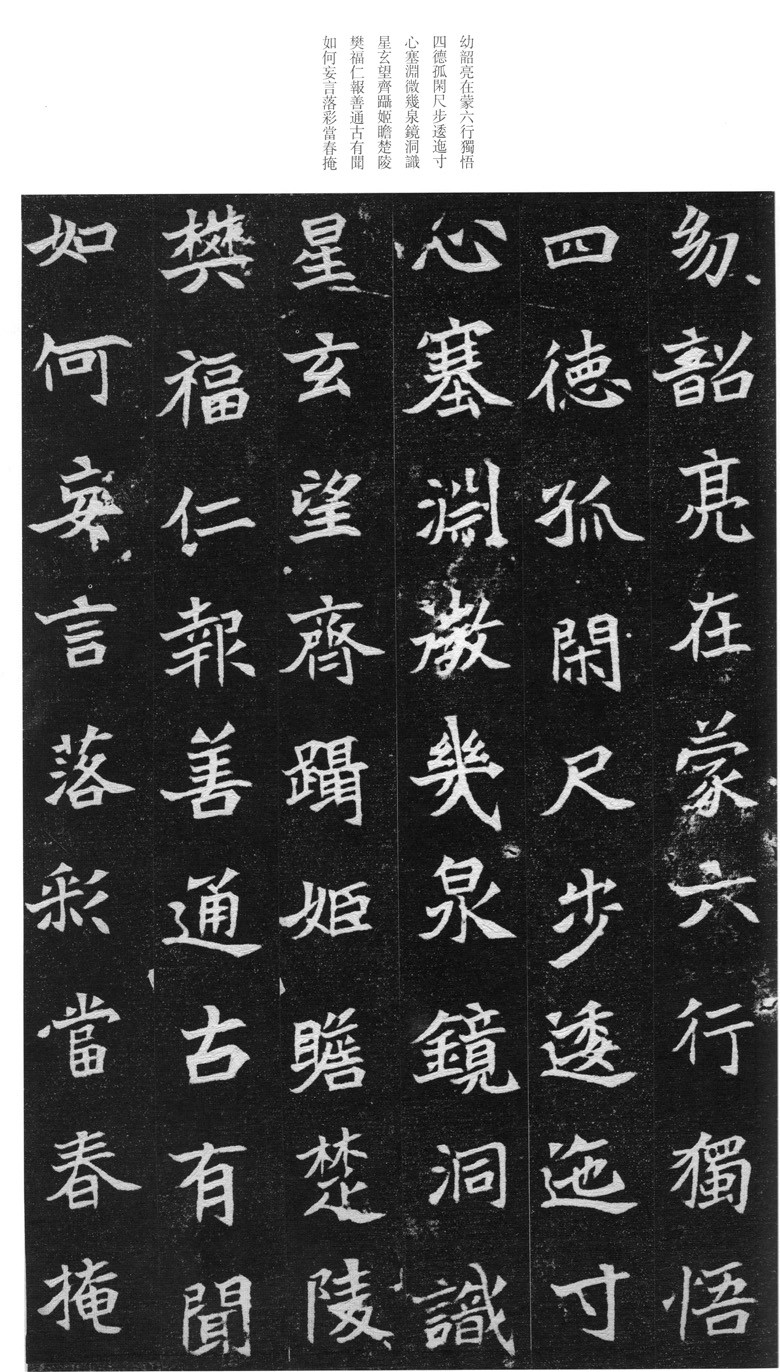 幼韶亮在蒙六行獨悟
四德孤閑尺步逶迤寸
心塞淵微幾泉鏡洞識
星玄望齊躡姬瞻楚陵
樊福仁報善通古有聞
如何妄言落彩當春掩
幼韶亮在蒙六行獨悟
四徳孤閑尺步逶迤寸
心塞淵微幾泉鏡洞識
星玄望齊躡姬瞻楚陵
樊福仁報善通古有聞
如何妄言落彩當春掩